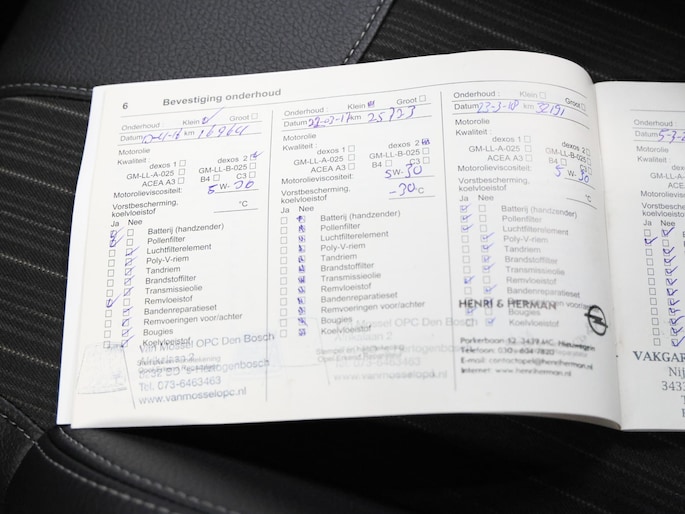 6 Bevestiging onderhoud
Onderhoud : Klein Groot
Datum km 16964
Motorolie
Kwaliteit :
dexos 1 dexos 2
GM-LL-A-025 GM-LL-B-025
ACEA A3 B4 C3
Motorolieviscositeit: 5 W- 30
Vorstbescherming, koelvloeistof °C
Ja Nee
Batterij (handzender)
Pollenfilter
Luchtfilterelement
Poly-V-riem
Tandriem
Brandstoffilter
Transmissieolie
Remvloeistof
Bandenreparatieset
Remvoeringen voor/achter
Bougies
Koelvloeistof
Van Mossel OPC Den Bosch
Afrikalaan 2
Tel. 073-6463463
www.vanmosselopc.nl
Onderhoud : Klein Groot
Datum 22-03-17 km 25723
Motorolie
Kwaliteit :
dexos 1 dexos 2
GM-LL-A-025 GM-LL-B-025
ACEA A3 B4 C3
Motorolieviscositeit: 5 W- 30
Vorstbescherming, koelvloeistof -30 °C
Ja Nee
Batterij (handzender)
Pollenfilter
Luchtfilterelement
Poly-V-riem
Tandriem
Brandstoffilter
Transmissieolie
Remvloeistof
Bandenreparatieset
Remvoeringen voor/achter
Bougies
Koelvloeistof
Van Mossel OPC Den Bosch
Afrikalaan 2
Tel. 073-6463463
www.vanmosselopc.nl
Onderhoud : Klein Groot
Datum 23-3-18 km 32191
Motorolie
Kwaliteit :
dexos 1 dexos 2
GM-LL-A-025 GM-LL-B-025
ACEA A3 B4 C3
Motorolieviscositeit: 5 W- 30
Vorstbescherming, koelvloeistof °C
Ja Nee
Batterij (handzender)
Pollenfilter
Luchtfilterelement
Poly-V-riem
Tandriem
Brandstoffilter
Transmissieolie
Remvloeistof
Bandenreparatieset
HENRI & HERMAN
Bougies
Koelvloeistof
Parkerbaan 12, 3439 MC, Nieuwegein
Telefoon: 030 - 604 7820
Internet: www.henriherman.nl
Ja Nee
VAKGAR